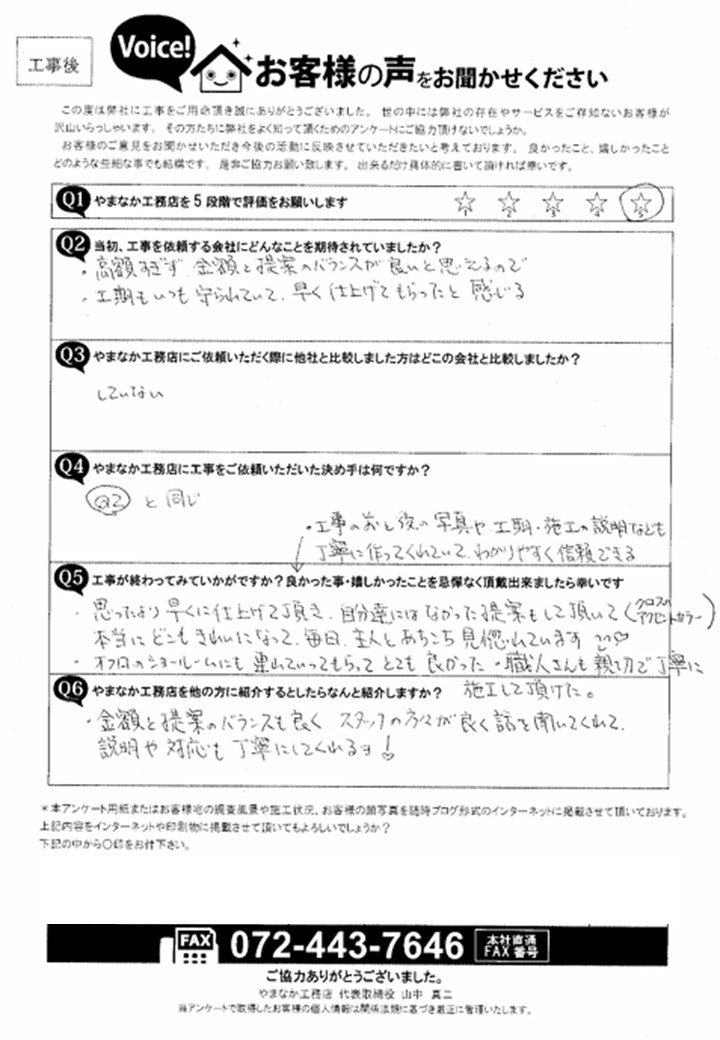 工事後
Voice!
お客様の声をお聞かせください
この度は弊社に工事をご用命頂き誠にありがとうございました。世の中には弊社の存在やサービスをご存知ないお客様が
沢山いらっしゃいます。その方たちに弊社をよく知って頂くためのアンケートにご協力頂けないでしょうか。
お客様のご意見をお聞かせいただき今後の活動に反映させていただきたいと考えております。良かったこと、嬉しかったこと
どのような些細な事でも結構です。是非ご協力お願い致します。出来るだけ具体的に書いて頂ければ幸いです。
Q1 やまなか工務店を5段階で評価をお願いします
1 2 3 4 5
Q2 当初、工事を依頼する会社にどんなことを期待されていましたか?
・高額すぎず、金額と提案のバランスが良いと思えるので
・工期もいつも守られていて、早く仕上げてもらったと感じる
Q3 やまなか工務店にご依頼いただく際に他社と比較しました方はどこの会社と比較しましたか?
していない
Q4 やまなか工務店に工事をご依頼いただいた決め手は何ですか?
Q2 と同じ
・工事の前と後の写真や工期・施工の説明なども
丁寧に作ってくれていて、わかりやすく信頼できる
Q5 工事が終わってみていかがですか?良かった事・嬉しかったことを忌憚なく頂戴出来ましたら幸いです
・思ったより早くに仕上げて頂き、自分達にはなかった提案もして頂いて(クロスのアクセントカラー)
本当にどこもきれいになって、毎日、主人とあちこち見惚れています♡
・オフロのショールームにも連れていってもらってとても良かった ・職人さんも親切で丁寧に
施工して頂けた。
Q6 やまなか工務店を他の方に紹介するとしたらなんと紹介しますか?
・金額と提案のバランスも良く スタッフの方々が良く話を聞いてくれて、
説明や対応も丁寧にしてくれるヨ!
*本アンケート用紙またはお客様宅の調査風景や施工状況、お客様の顔写真を随時ブログ形式のインターネットに掲載させて頂いております。
上記内容をインターネットや印刷物に掲載させて頂いてもよろしいでしょうか?
下記の中から〇印をお付下さい。
FAX 072-443-7646 本社直通 FAX番号
ご協力ありがとうございました。
やまなか工務店 代表取締役 山中 真二
当アンケートで取得したお客様の個人情報は関係法規に基づき厳正に管理いたします。